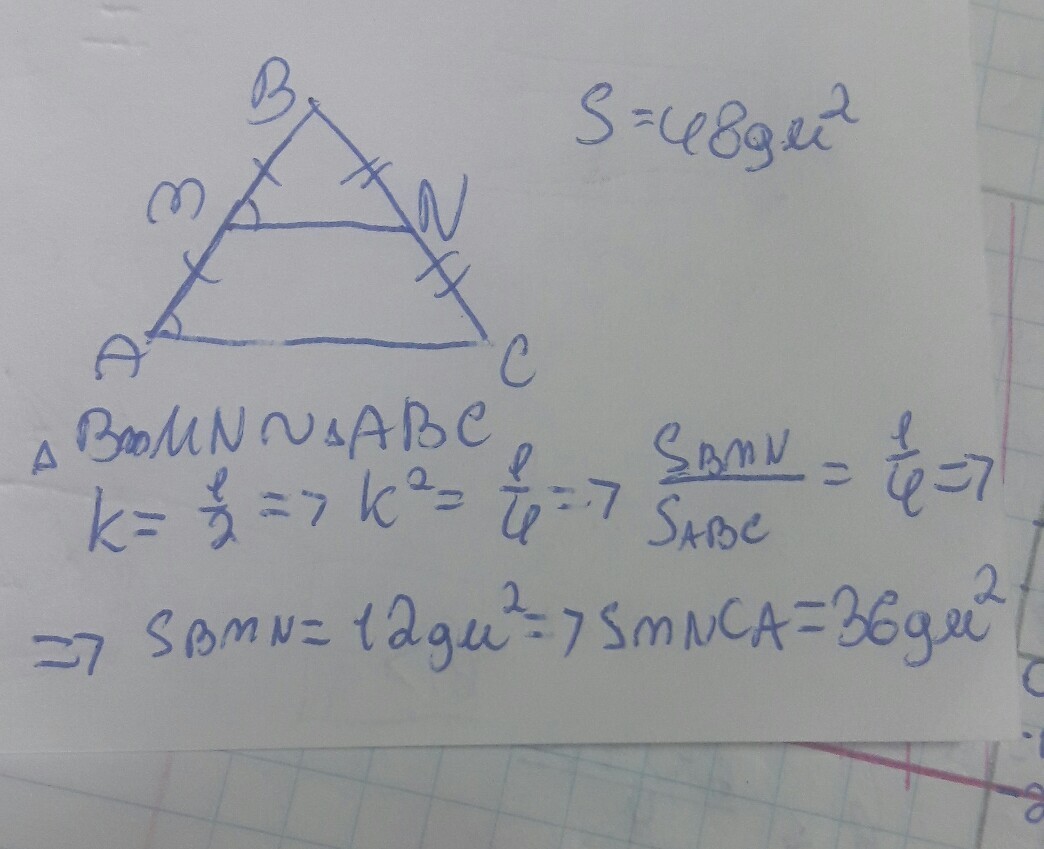 B
S=48дм²
M
N
A
C
△BMN∼△ABC
k=1/2 => k²=1/4 => SBMN/SABC=1/4 =>
=> SBMN=12дм² => SMNCA=36дм²